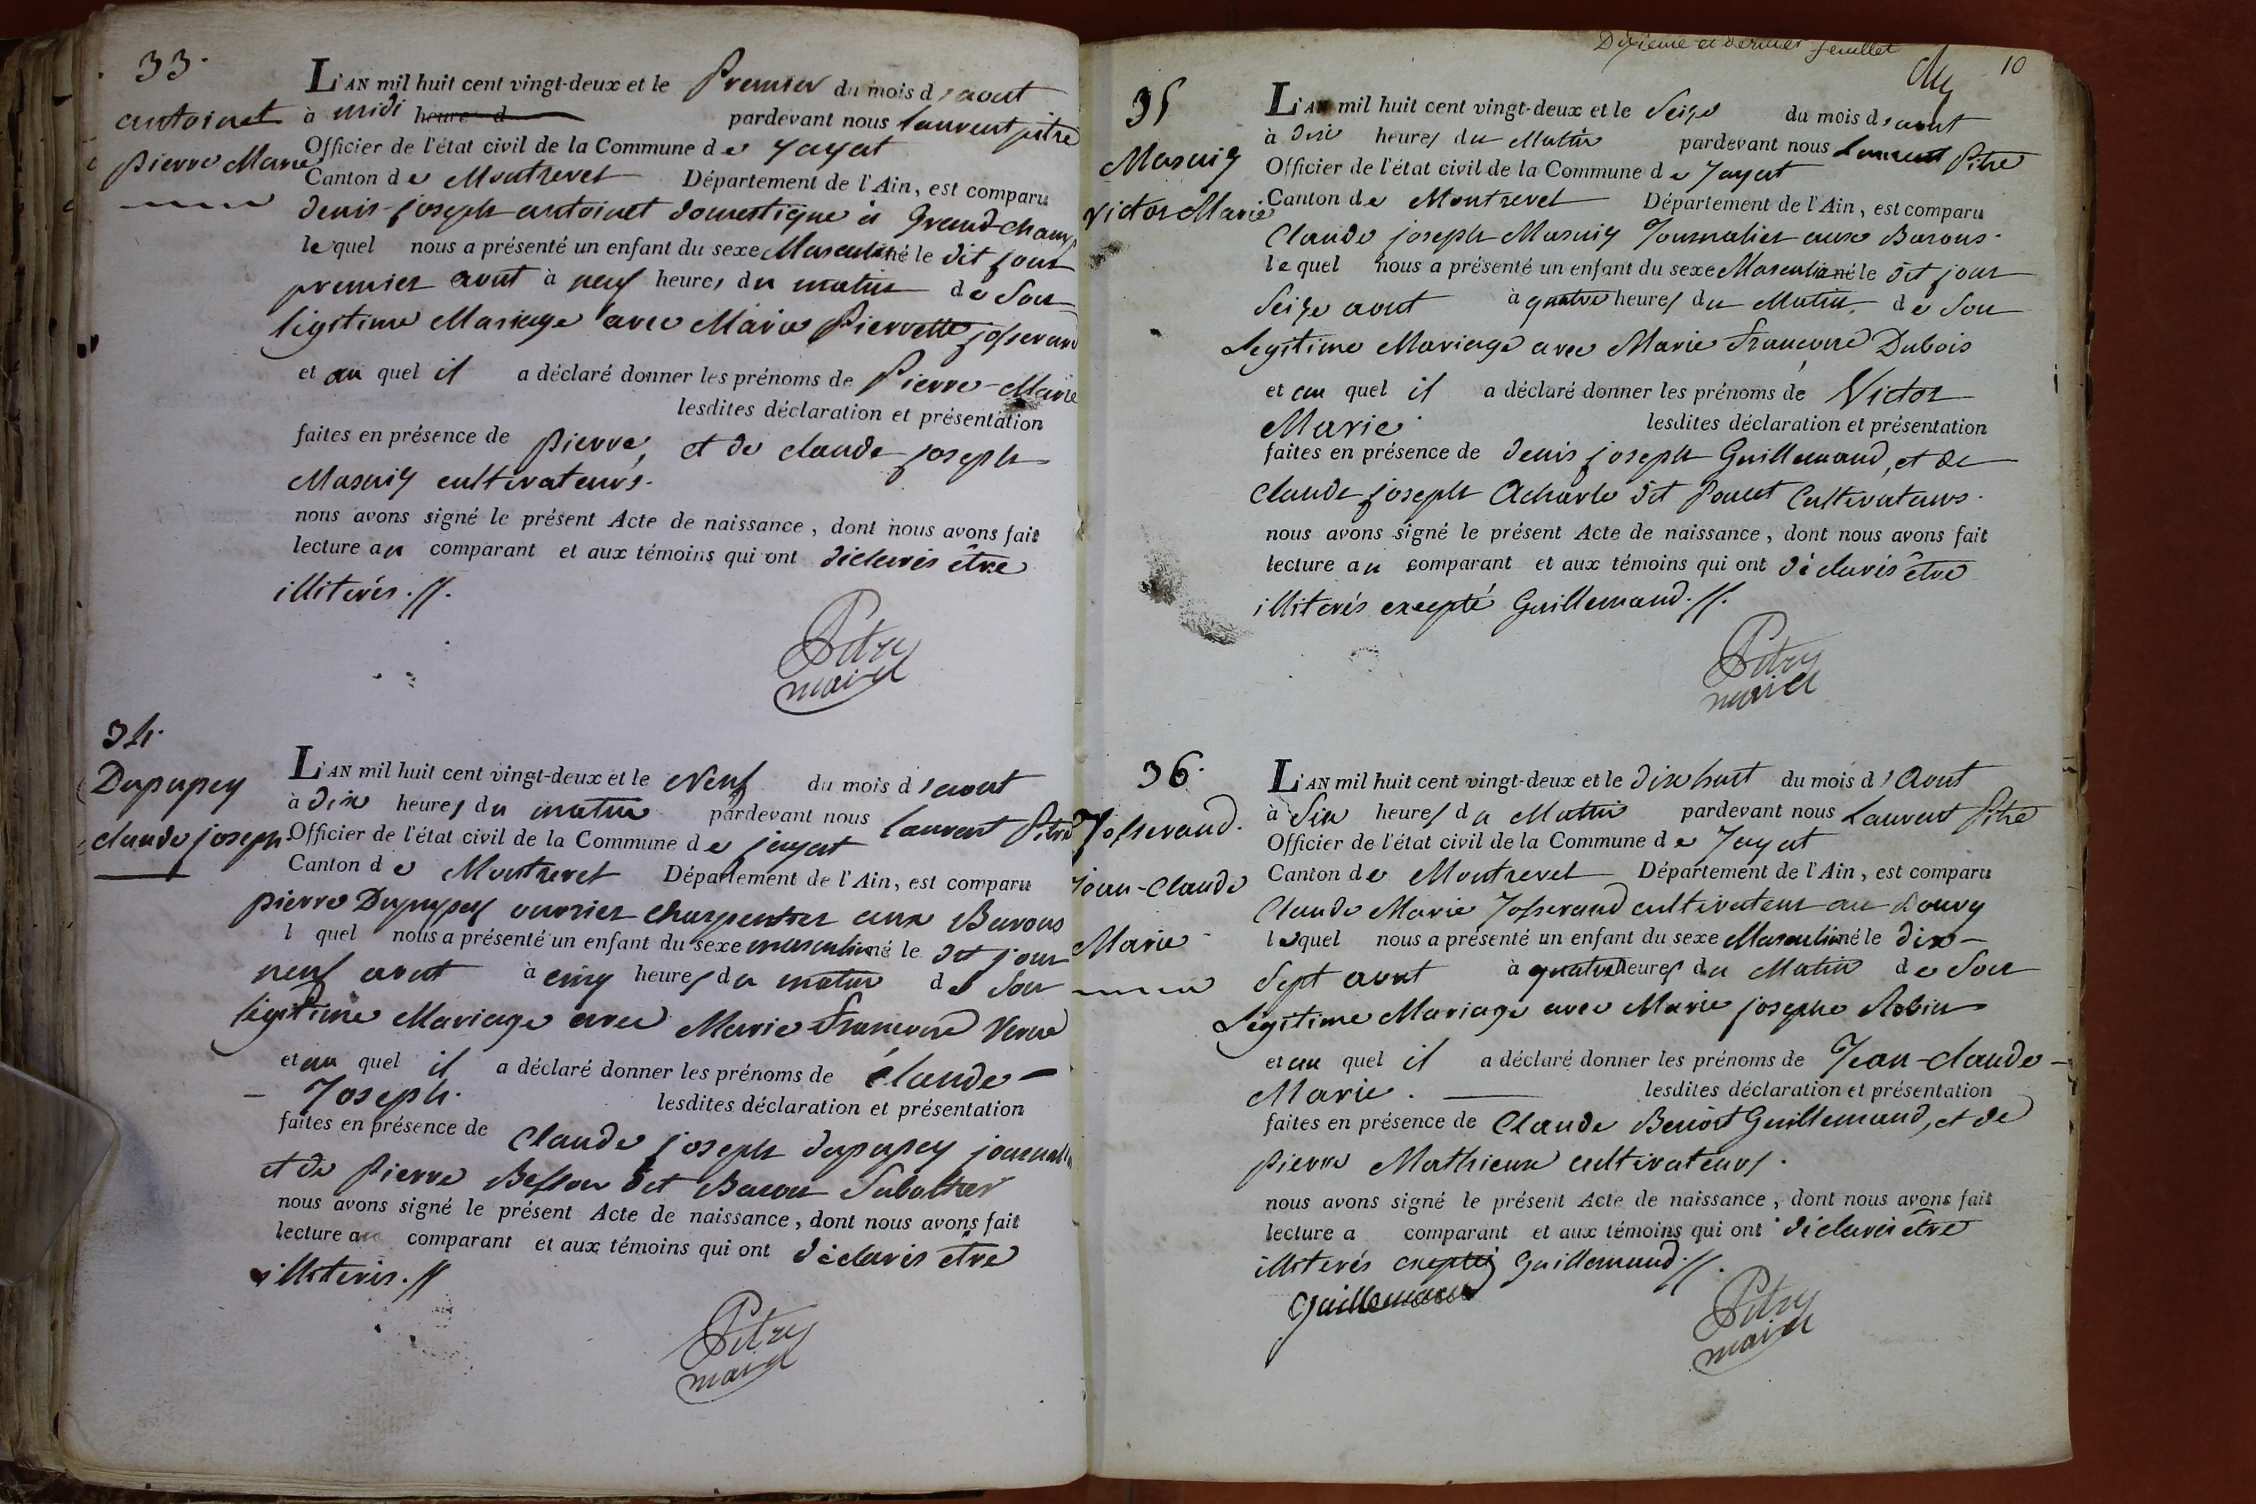 33.
antoinet
pierre Marie
L'AN mil huit cent vingt-deux et le Premier du mois d'aout
à midi heure d pardevant nous laurent pitre
Officier de l'état civil de la Commune de Jayat
Canton de Montrevel Département de l'Ain, est comparu
denis-joseph antoinet domestique à Grand-champ
lequel nous a présenté un enfant du sexe Masculin né le dit jour
premier aout à neuf heures du matin de Son
légitime Mariage avec Marie Pierrette josserand
et au quel il a déclaré donner les prénoms de Pierre-Marie
lesdites déclaration et présentation
faites en présence de pierre, et de claude joseph
Masuiy cultivateurs.
nous avons signé le présent Acte de naissance, dont nous avons fait
lecture au comparant et aux témoins qui ont déclarés être
illiterés.//.
Pitre
maire
34.
Dupupey
claude joseph
L'AN mil huit cent vingt-deux et le Neuf du mois d'aout
à dix heures du matin pardevant nous laurent Pitre
Officier de l'état civil de la Commune de jayat
Canton de Montrevel Département de l'Ain, est comparu
pierre Dupupey ouvrier charpentier aux Barons
l quel nous a présenté un enfant du sexe masculin né le dit jour
neuf aout à cinq heures du matin de Son
légitime Mariage avec Marie francoise Verne
et au quel il a déclaré donner les prénoms de claude-
- Joseph. lesdites déclaration et présentation
faites en présence de Claude joseph dupupey journalier
et de Pierre Besson dit Bacon Sabotier
nous avons signé le présent Acte de naissance, dont nous avons fait
lecture au comparant et aux témoins qui ont déclarés être
illiterés.//
Pitre
maire
Dixieme et dernier feuillet
10
35
Masuiy
victor Marie
L'AN mil huit cent vingt-deux et le Seize du mois d'aout
à dix heures du Matin pardevant nous Laurent Pitre
Officier de l'état civil de la Commune de Jayat
Canton de Montrevel Département de l'Ain, est comparu
Claude joseph Masuiy Journalier aux Barons.
lequel nous a présenté un enfant du sexe Masculin né le dit jour
Seize aout à quatre heures du Matin de Son
Legitime Mariage avec Marie francoise Dubois
et au quel il a déclaré donner les prénoms de Victor
Marie. lesdites déclaration et présentation
faites en présence de denis joseph Guillemaud, et de
Claude joseph Acharle dit Poncet Cultivateurs.
nous avons signé le présent Acte de naissance, dont nous avons fait
lecture au comparant et aux témoins qui ont déclarés être
illiterés excepté Guillemaud.//.
Pitre
maire
36.
Josserand.
jean-Claude
Marie
L'AN mil huit cent vingt-deux et le dix huit du mois d'Aout
à Six heures du Matin pardevant nous Laurent Pitre
Officier de l'état civil de la Commune de Jayat
Canton de Montrevel Département de l'Ain, est comparu
Claude Marie Josserand cultivateur au Bourg
lequel nous a présenté un enfant du sexe Masculin né le dix-
Sept aout à quatre heures du Matin de Son
Légitime Mariage avec Marie josephe Robin
et au quel il a déclaré donner les prénoms de Jean-claude-
Marie. lesdites déclaration et présentation
faites en présence de Claude Benoît Guillemaud, et de
pierre Mathieux cultivateurs.
nous avons signé le présent Acte de naissance, dont nous avons fait
lecture a comparant et aux témoins qui ont déclarés être
illiterés excepté Guillemaud.//.
Guillemaud
Pitre
maire